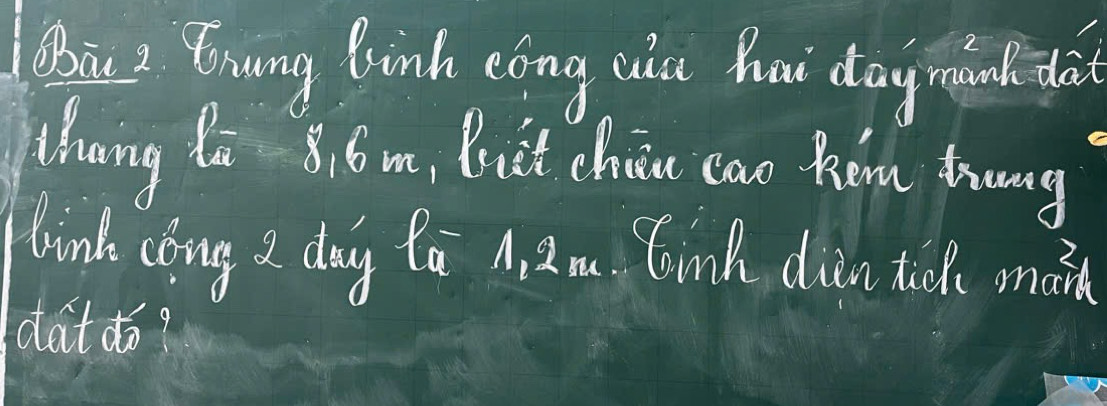 Bài 2. Trung bình cộng của hai đáy mảnh đất
thang là 8,6 m, biết chiều cao kém trung
bình cộng 2 đáy là 1,2 m. Tính diện tích mảnh
đất đó?